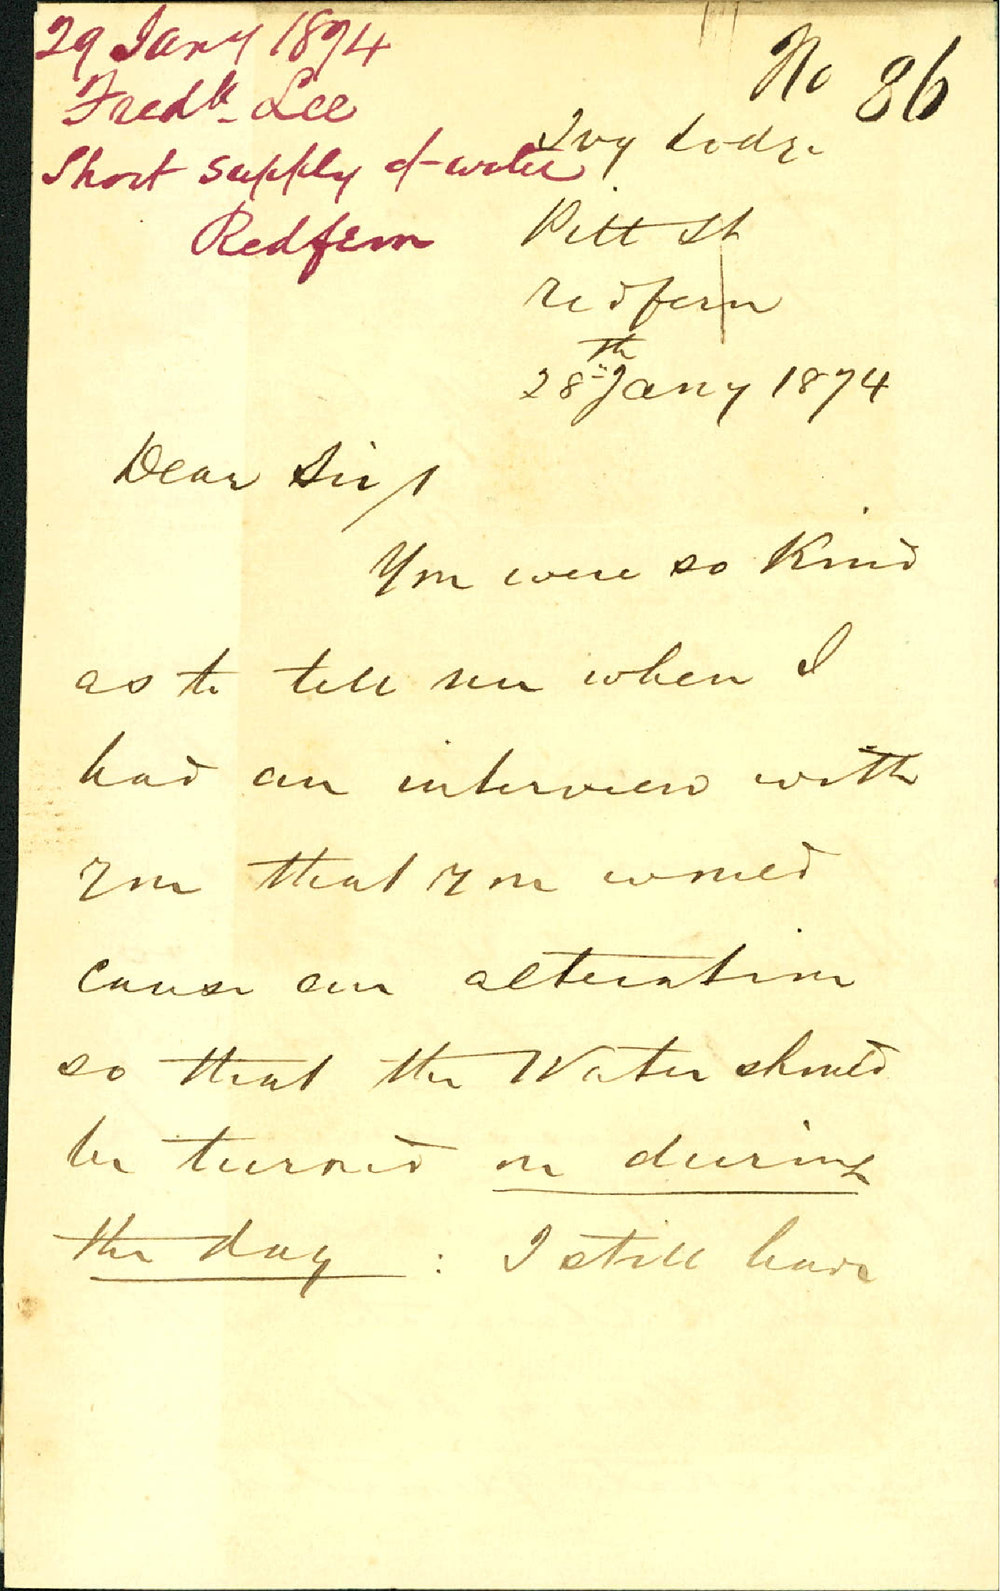 29 Jany 1874
Fredk. Lee
Short supply of water
Redfern
No 86
Ivy Lodge
Pitt St
Redfern
28th Jany 1874
Dear Sir/
You were so Kind
as to tell me when I
had an interview with
you that you would
cause an alteration
so that the Water should
be turned on during
the day : I still have